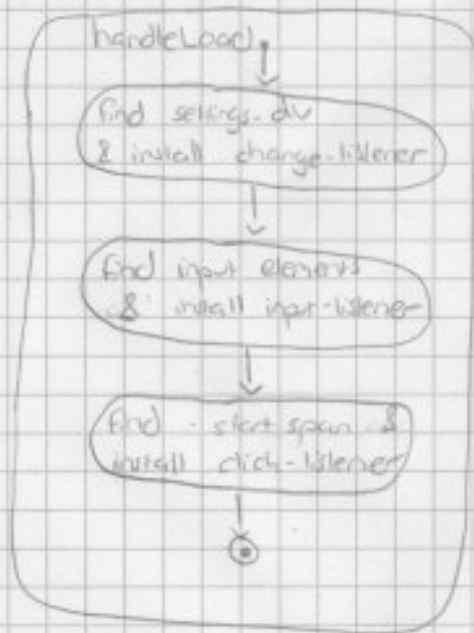 handleLoad
find settings-div
& install change-listener
find input elements
& install input-listener
find start span &
install click-listener